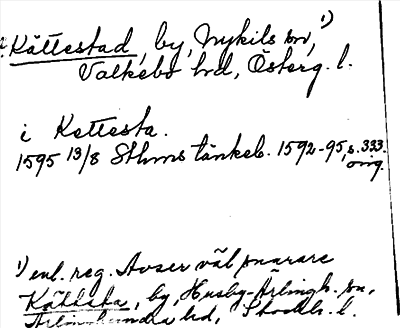 Kättestad, by, Nykils sn, 1)
Valkebo hd, Österg. l.
i Kettesta.
1595 13/8 Sthms tänkeb. 1592-95, s. 333.
orig.
1) enl. reg. Avser väl snarare
Kättsta, by, Husby-Ärlingh. sn,
Ärlinghundra hd, Stockh. l.